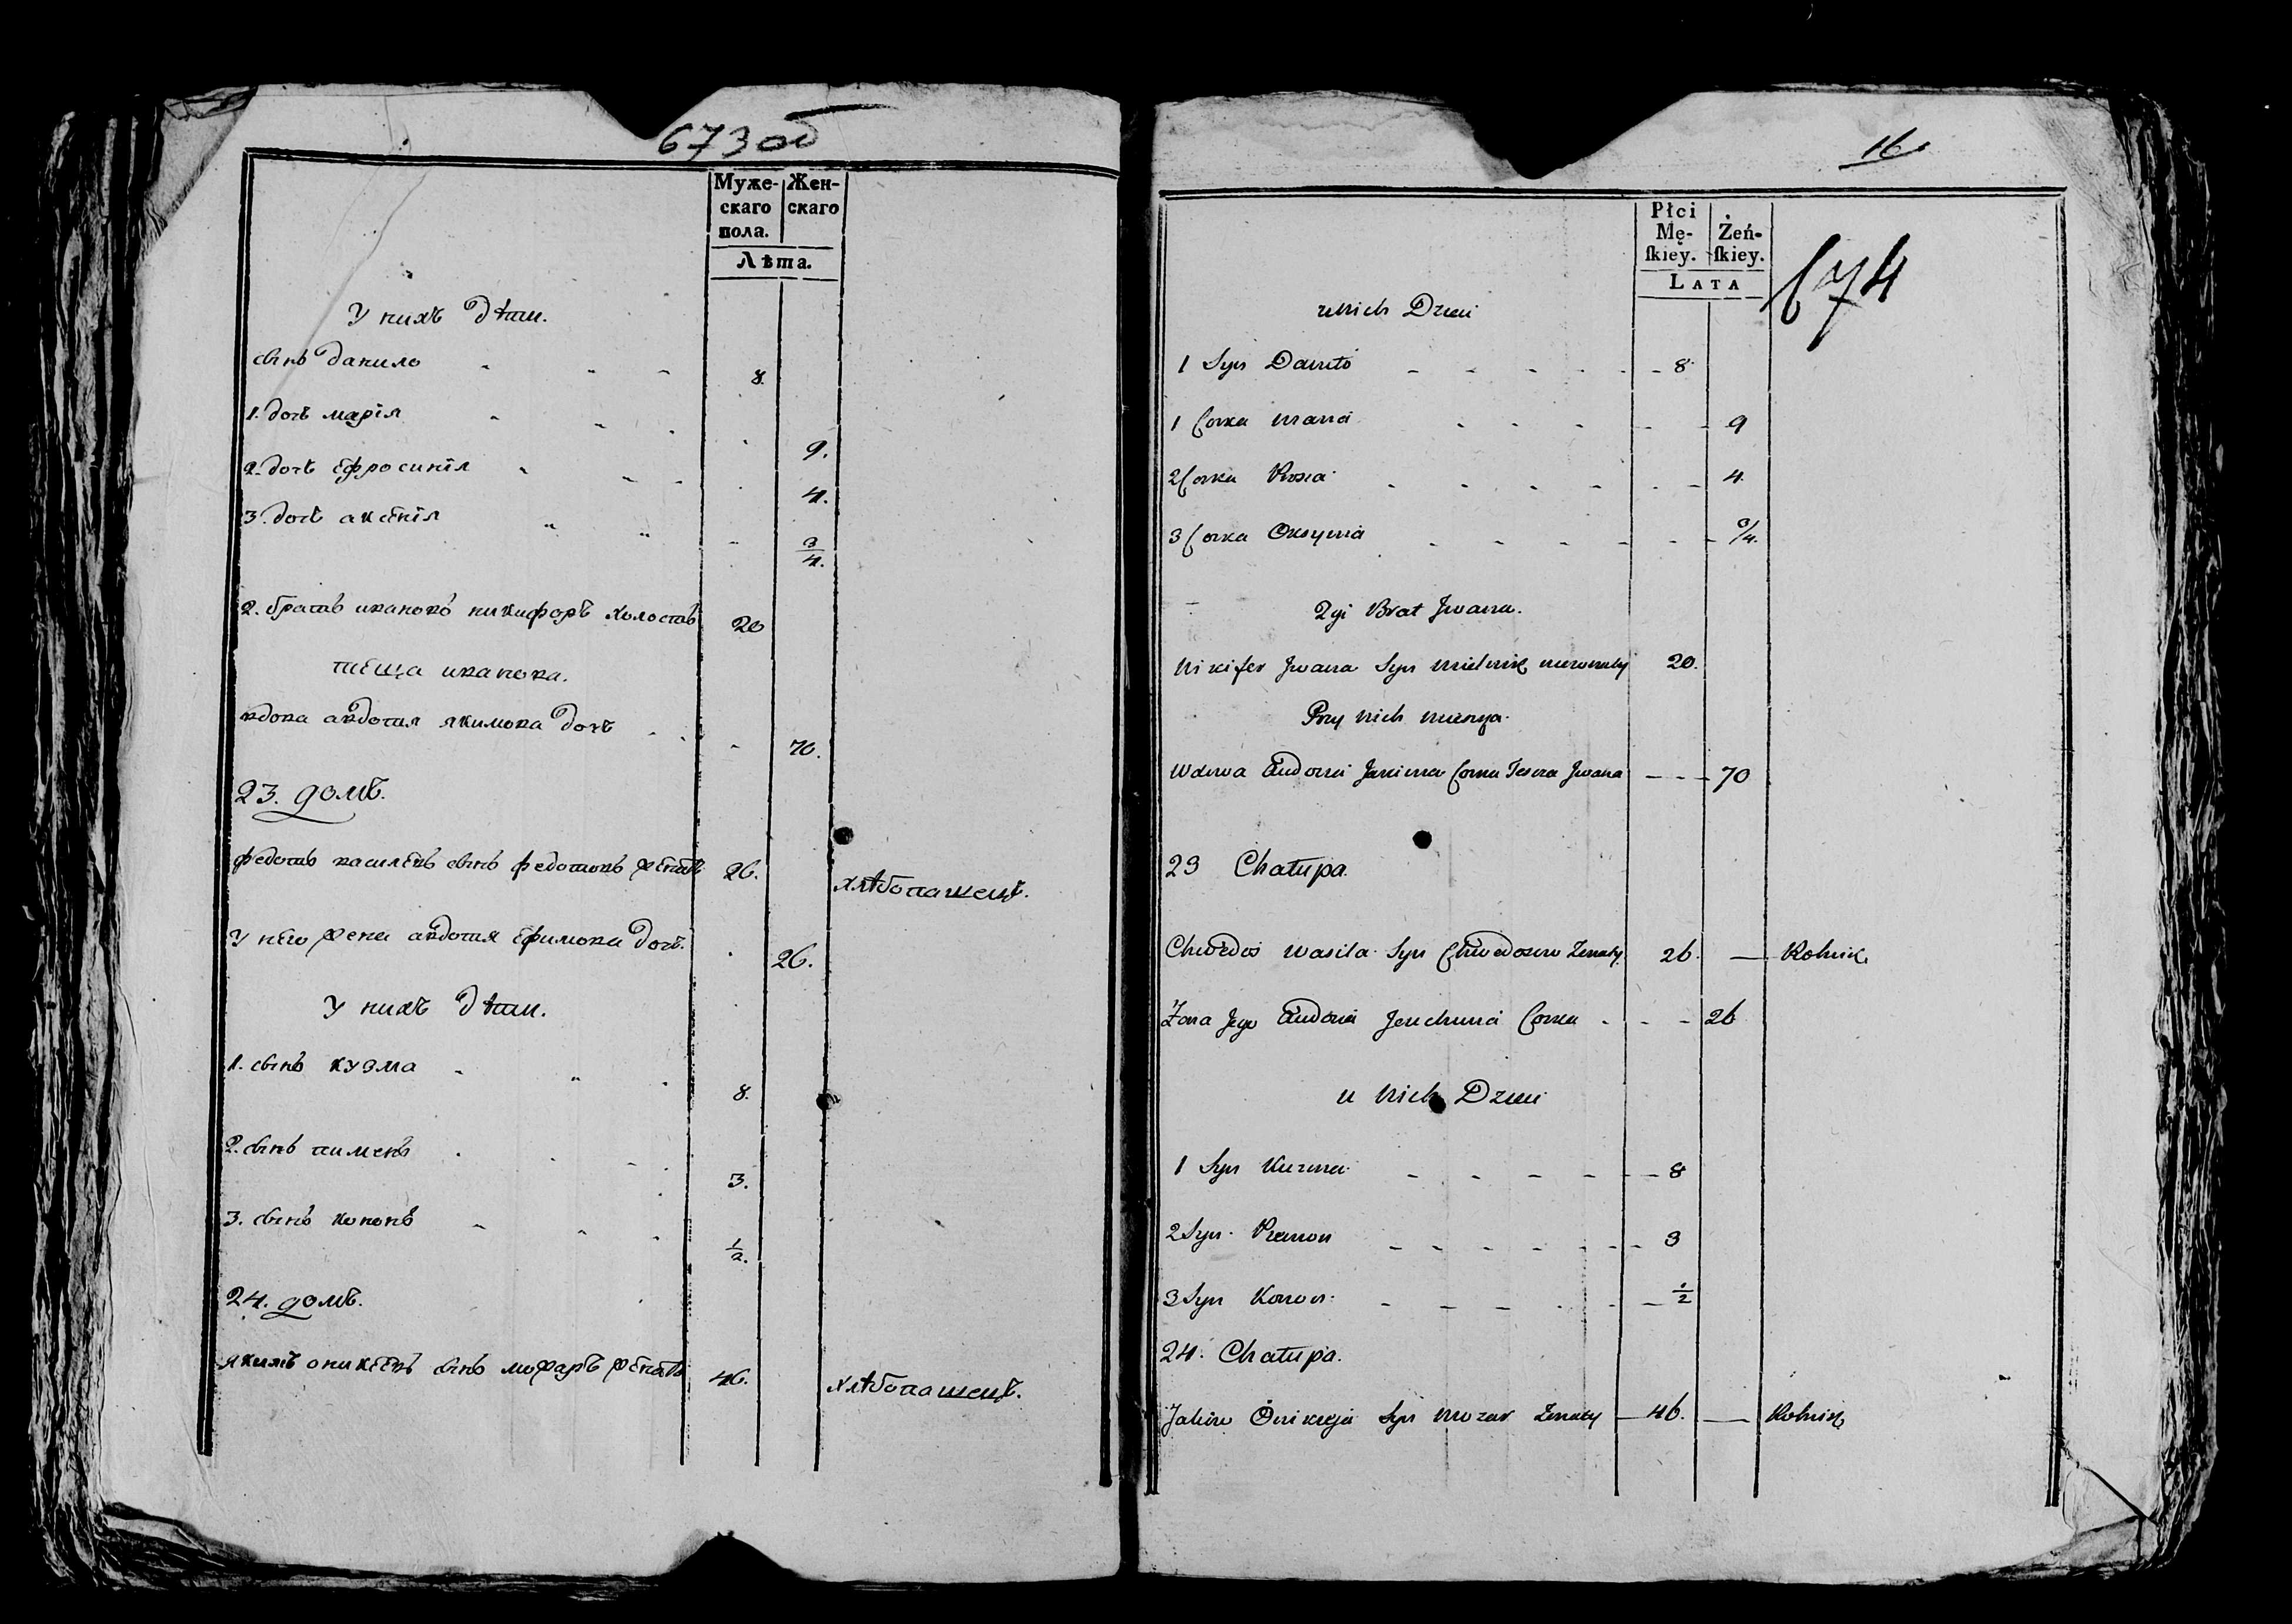 673 об
Муже-скаго пола. Жен-скаго
Лѣта.
У нихъ Дѣти.
сынъ Данило 8.
1. дочь марія 9.
2. дочь Ефросинія 4.
3. дочь аксенія 3/4.
2. братъ ивановъ никифоръ холостъ 20
теща иванова.
вдова авдотия якимова дочь 70.
23. домъ.
федотъ василевъ сынъ федотовъ женатъ 26. хлѣбопашецъ.
У него жена авдотия Ефимова дочь. 26.
У нихъ Дѣти.
1. сынъ кузма 8.
2. сынъ пименъ 3.
3. сынъ кононъ 1/2.
24. домъ.
якимъ оникеевъ сынъ можаръ женатъ 46. хлѣбопашецъ.
16
674
Płci Mę-ſkiey. Żeń-ſkiey.
LATA
u Nich Dzieci
1 Syn Daniło 8
1 Corka Maria 9
2 Corka 4.
3 Corka Oksynia 3/4.
2gi Brat Jwana.
Nikifer Jwana Syn Mielnik niezonaty 20.
Przy Nich
Wdowa Audocia Corka Jwana 70
23 Chałupa.
Chwedos Wasila Syn Zonaty 26. Rolnik
Zona Jego Audocia Corka 26
u Nich Dzieci
1 Syn Kuzma 8
2 Syn 3
3 Syn Konon 1/2
24. Chałupa.
Jakim Onikieja Syn Mozar Zonaty 46. Rolnik